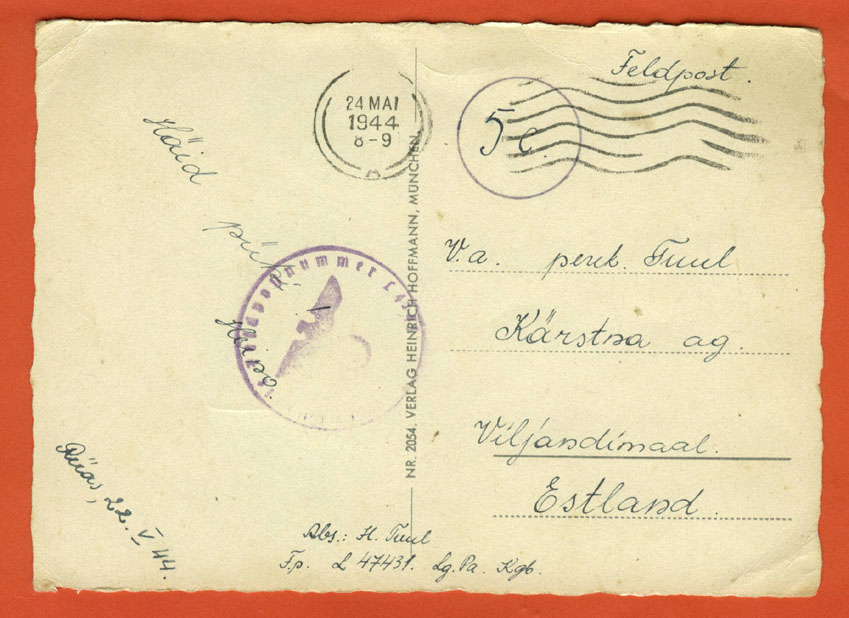 Feldpost.
24 MAI
1944
8-9
5 c.
Häid
pühi!
Heino.
Riias, 22. V 44.
Feldpostnummer L 4
NR. 2054. VERLAG HEINRICH HOFFMANN, MÜNCHEN
V.a. perek. Tuul
Kärstna ag.
Viljandimaal.
Estland.
Abs.: H. Tuul
F.p. L 47431. Lg. Pa. Kgb.